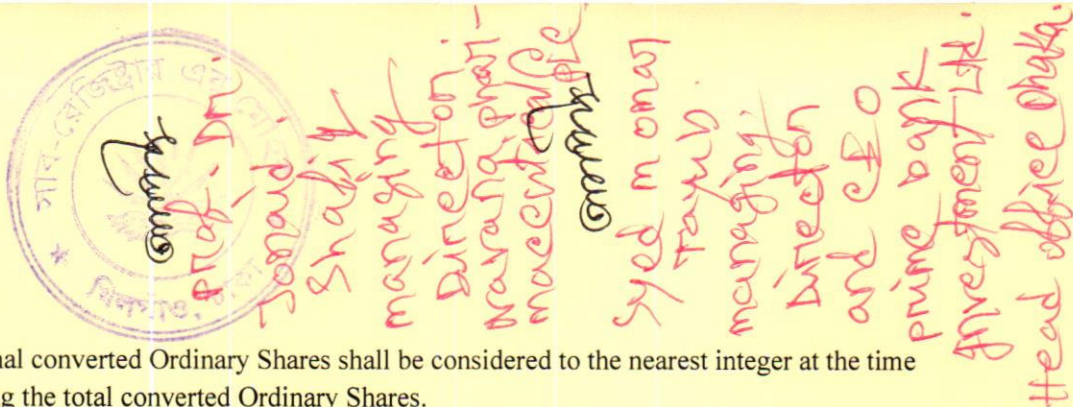 সাব-রেজিস্ট্রার এর
খিলগাঁও, ঢাকা
Prof. Dr.
Shafiq
managing
Director
Navana phar-
maceuticals PLC
Syed m omar
Tayub
managing
Director
and CEO
prime bank
investment Ltd.
Head office Dhaka.
nal converted Ordinary Shares shall be considered to the nearest integer at the time
ng the total converted Ordinary Shares.